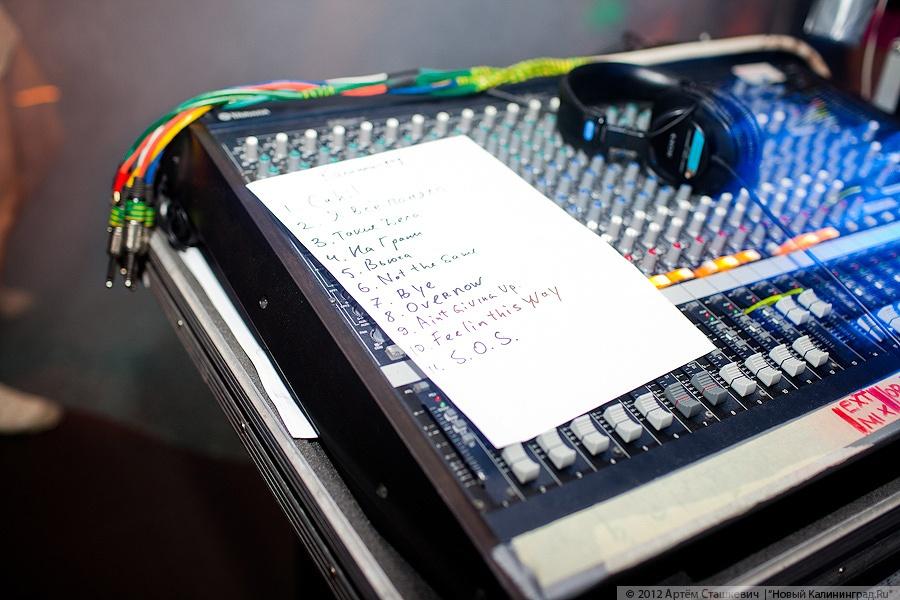 1.
2. Я
3. Такие
4. На Грани
5. Вьюга
6. Not the Same
7. Bye
8. Overnow
9. Aint Giving Up
10. Feelin this Way
11. S.O.S.
EXT
MIX
© 2012 Артём Сташкевич | "Новый Калининград.Ru"